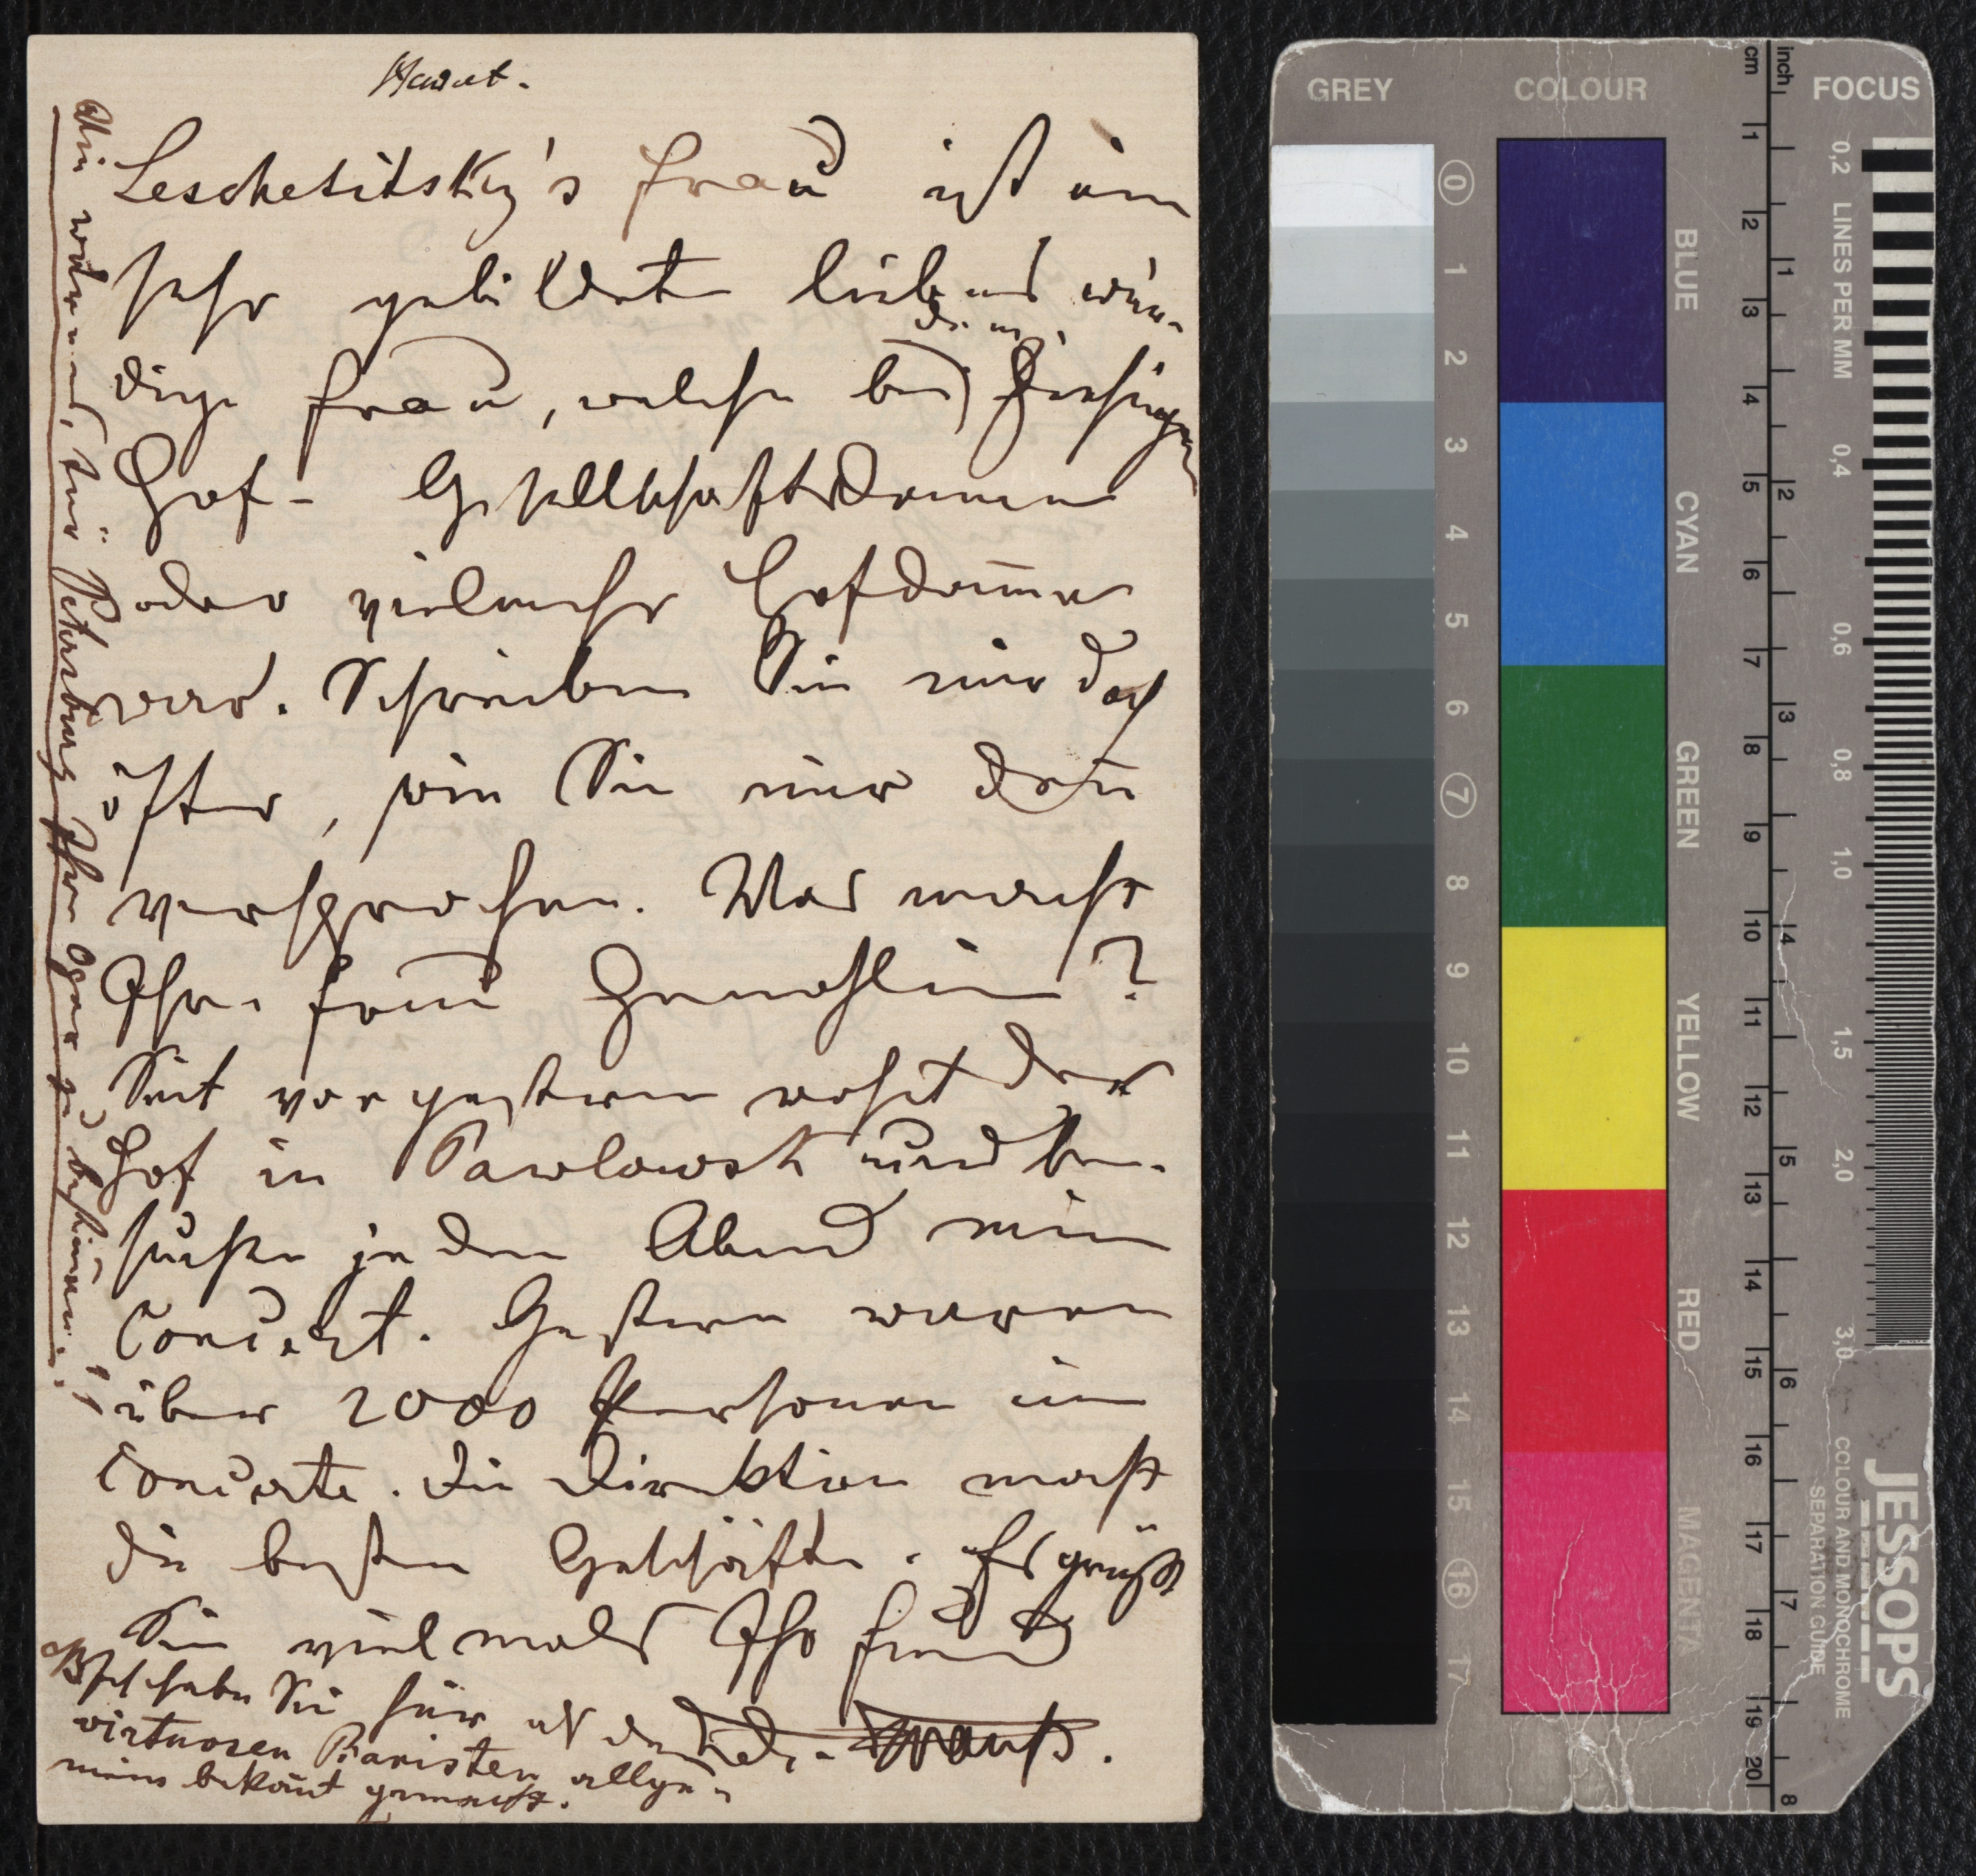 Leschetitsky's Frau ist eine
sehr gebildete liebenswür-
dige Frau, welche bei der
hiesigen
Hof- Gesellschaftsdame
oder vielmehr Hofdame
war. Schreiben Sie mir doch
öfter, wie Sie mir dañ
versprochen. Was macht
Ihre Frau Gemahlin?
Seit vorgestern wohnt der
Hof in Pawlowsk und be-
suchte jeden Abend mein
Concert. Gestern waren
über 2000 Personen im
Concerte. Die Direktion macht
die besten Geschäfte. Es grüßt
Sie vielmals Ihr Freund
Strauß.
Ich habe Sie hier als den
virtuosen Pianisten allge-
mein bekañt gemacht.
Sie werden, für Petersburg Ihre Oper zu bestim̄en!!
GREY
COLOUR
cm
inch
FOCUS
0
1
2
3
4
5
6
7
8
9
10
11
12
13
14
15
16
17
BLUE
CYAN
GREEN
YELLOW
RED
MAGENTA
1
2
3
4
5
6
7
8
9
10
11
12
13
14
15
16
17
18
19
20
1
2
3
4
5
6
7
8
LINES PER MM
0,2
0,4
0,6
0,8
1,0
1,5
2,0
3,0
JESSOPS
COLOUR AND MONOCHROME
SEPARATION GUIDE